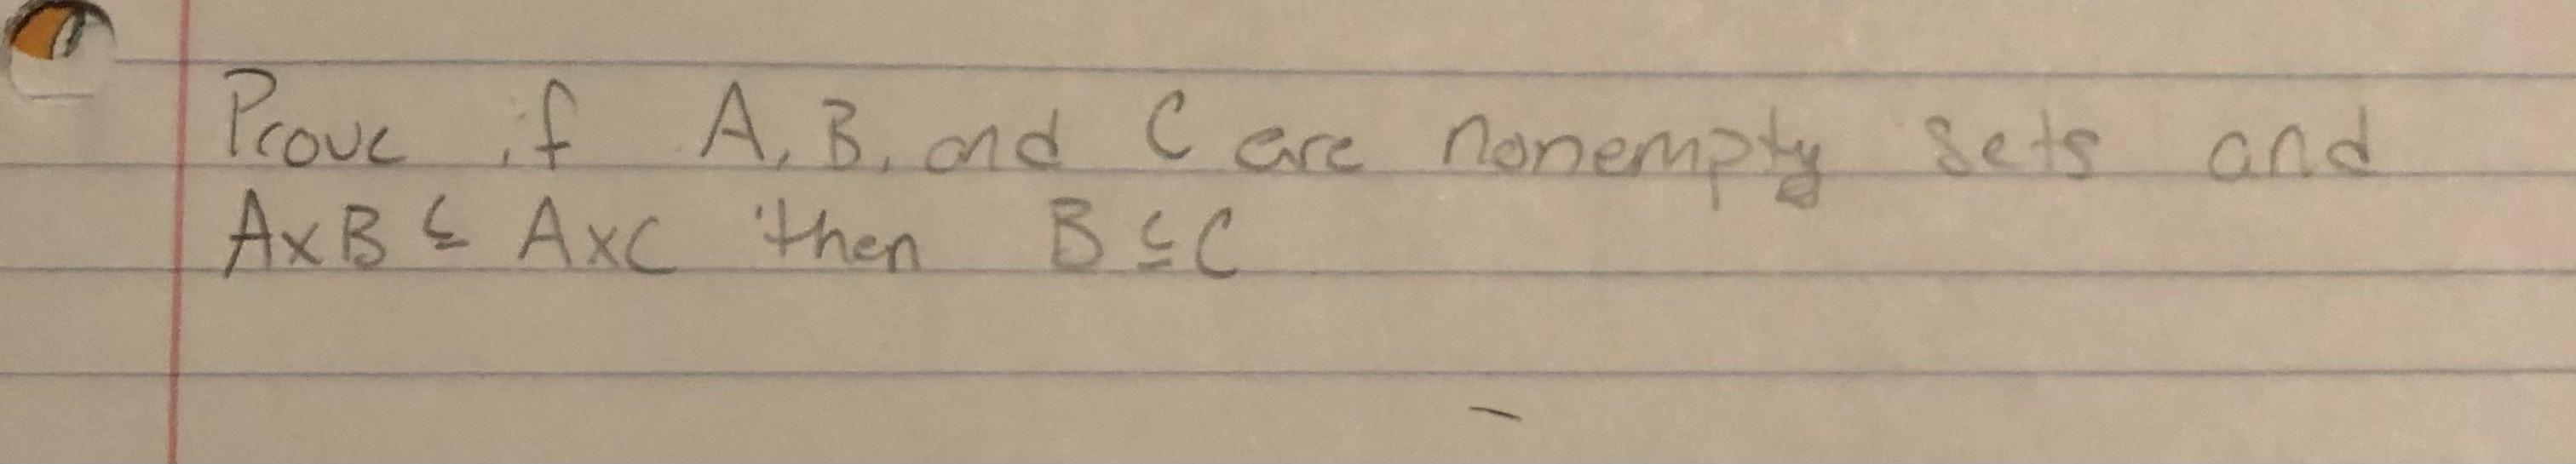 Prove if A, B, and C are nonempty sets and
A×B ⊆ A×C then B ⊆ C